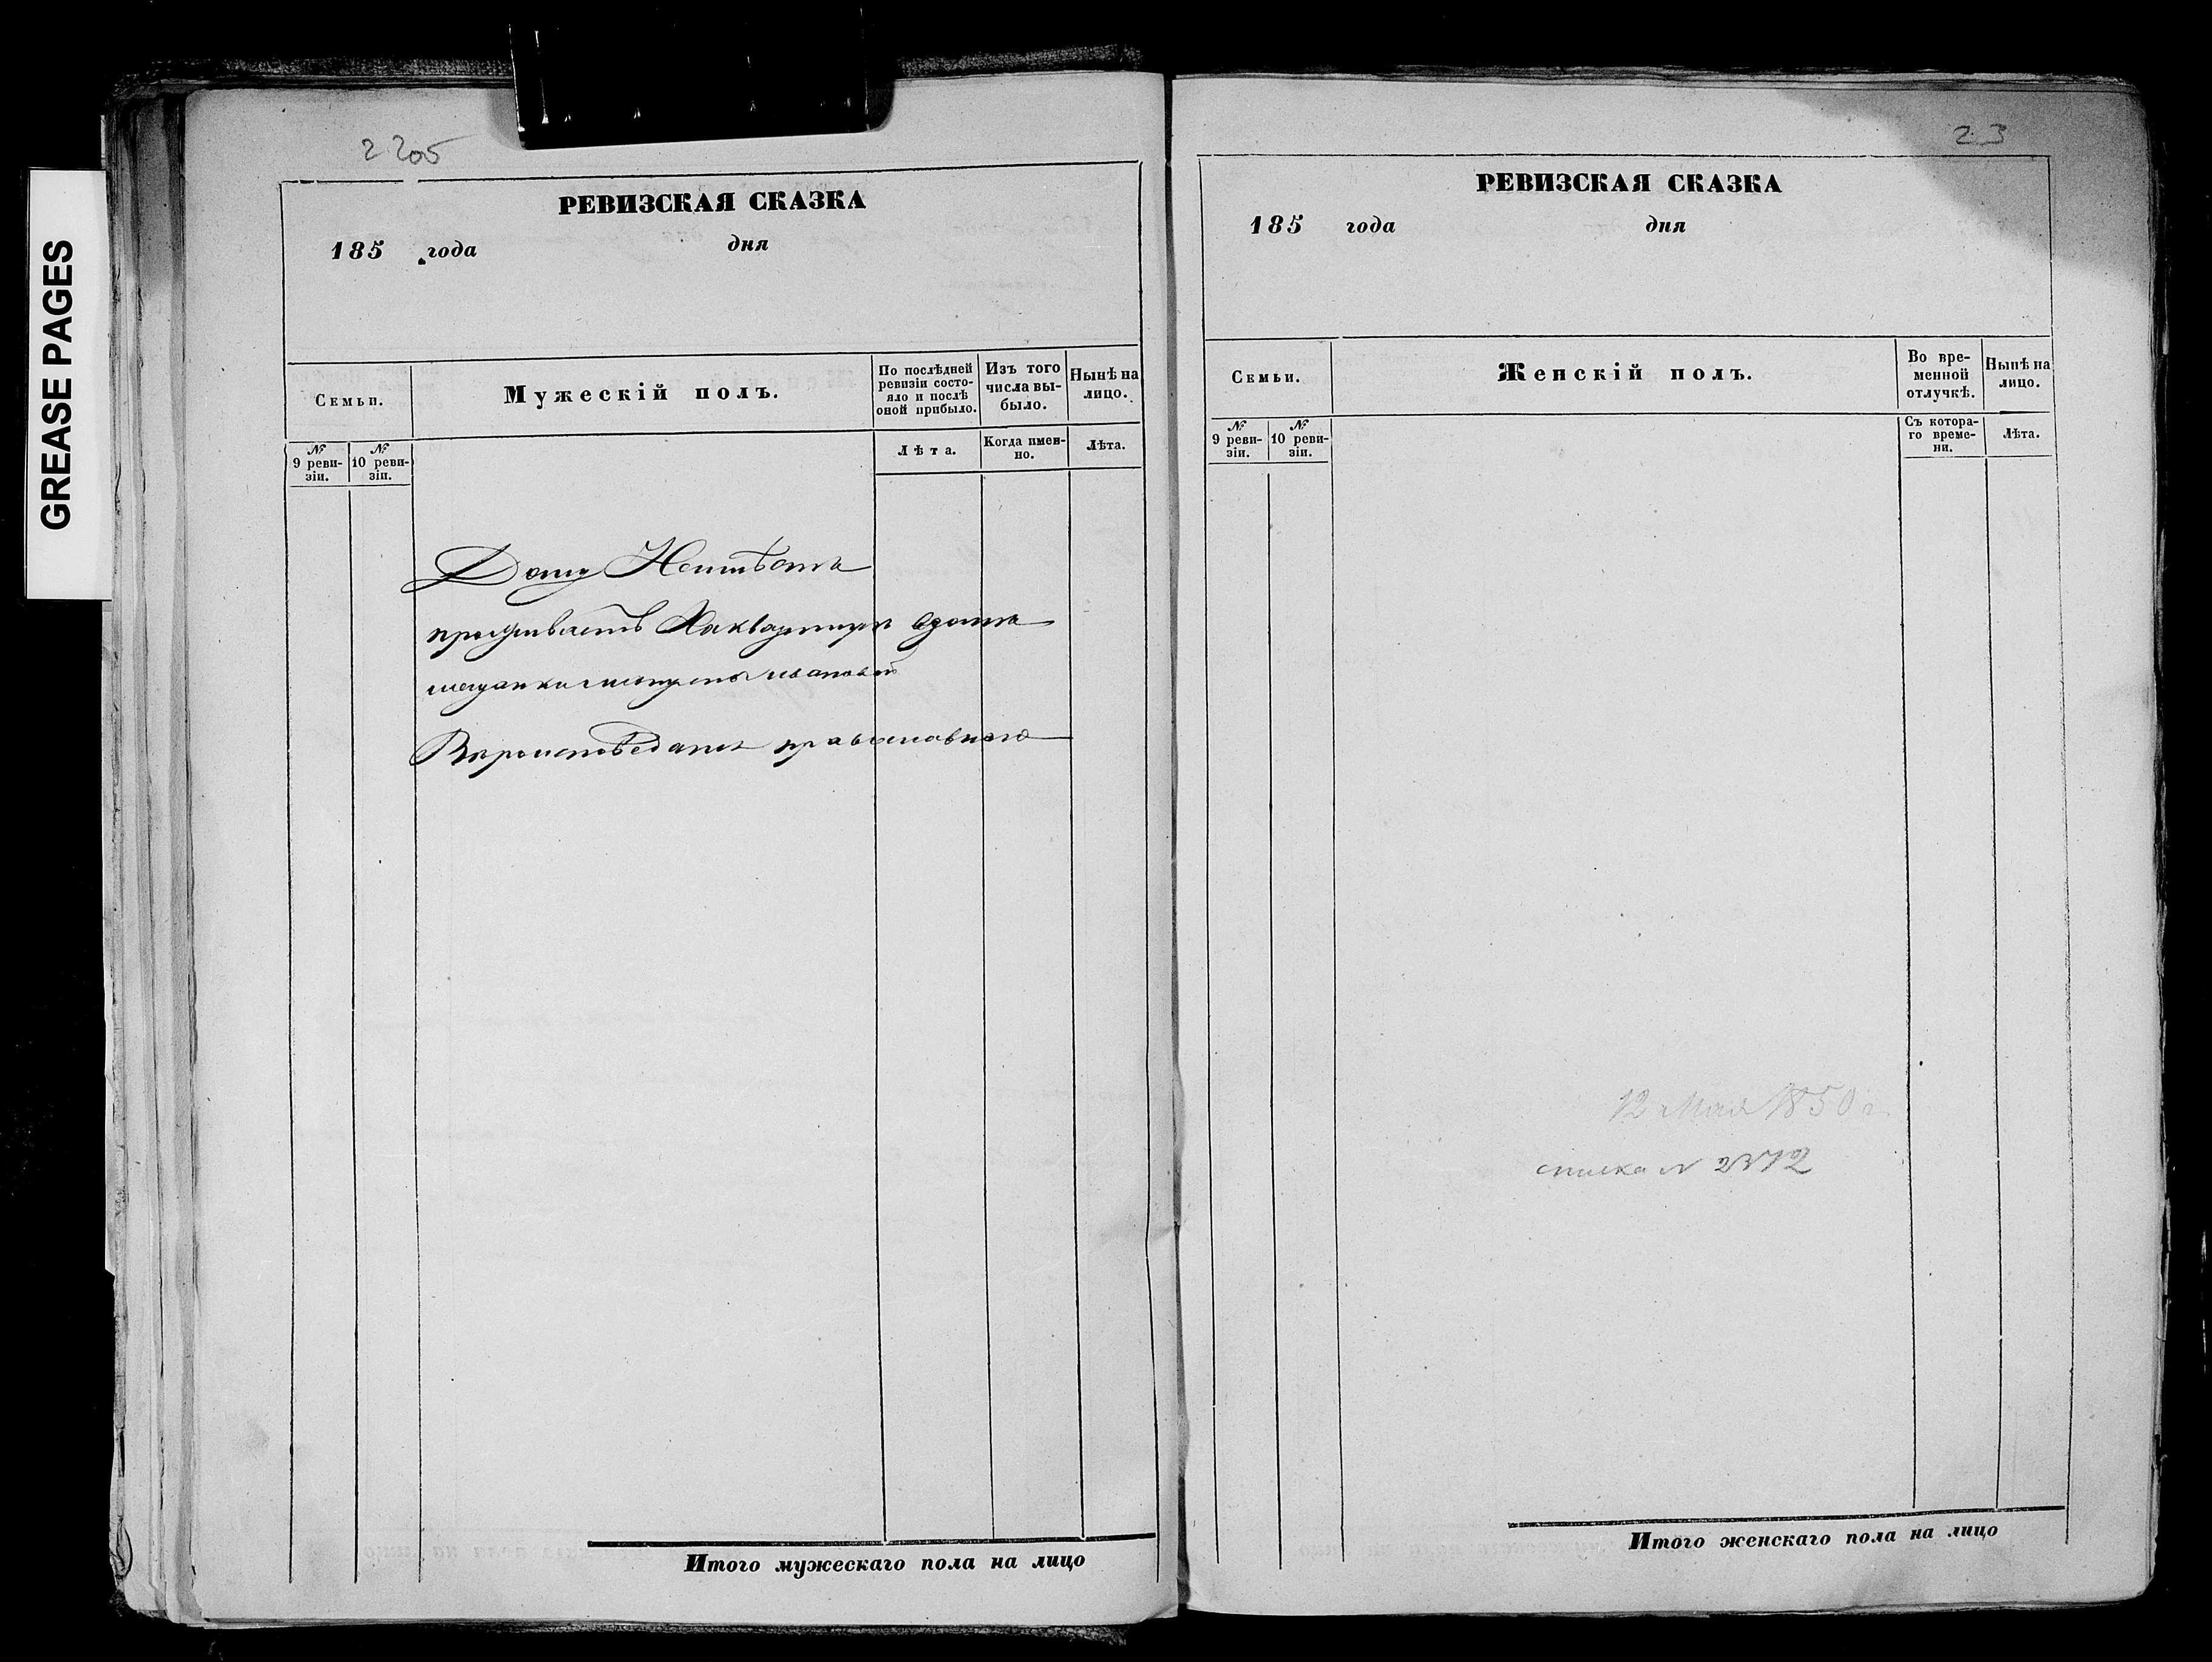 GREASE PAGES
22об
РЕВИЗСКАЯ СКАЗКА
185 года дня
Семьи.
Мужескій полъ.
По послѣдней ревизіи состо-
яло и послѣ
оной прибыло.
Изъ того
числа вы-
было.
Нынѣ на
лицо.
№ 9 реви-
зіи.
№ 10 реви-
зіи.
Лѣта.
Когда имен-
но.
Лѣта.
Дому Неимѣетъ
проживаетъ Наквартире вдоме
мещанки ивановой
Вероисповедания православнаго
Итого мужескаго пола на лицо
23
РЕВИЗСКАЯ СКАЗКА
185 года дня
Семьи.
Женскій полъ.
Во вре-
менной
отлучкѣ.
Нынѣ на
лицо.
№ 9 реви-
зіи.
№ 10 реви-
зіи.
Съ котора-
го време-
ни.
Лѣта.
12 Мая 1850 г.
Итого женскаго пола на лицо